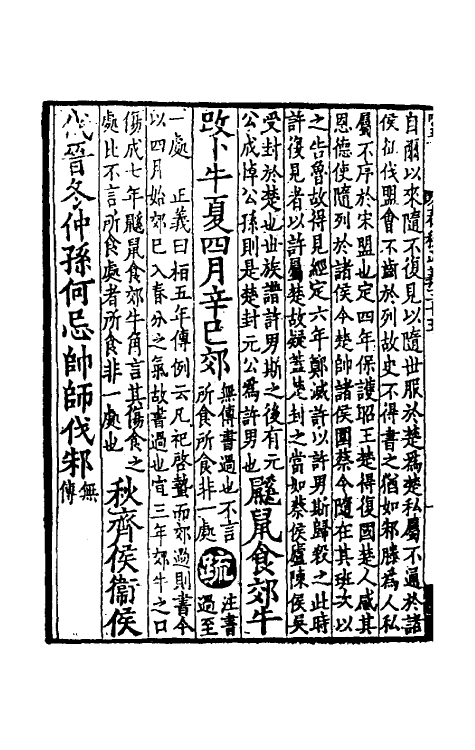 自爾以來隨不復見以隨世服於楚爲楚私屬不通於諸
侯征伐盟會不齒於列故史不得書之猶如邾滕為人私
屬不序於宋盟也定四年保護昭王楚得復國楚人感其
恩德使隨列於諸侯今楚帥諸侯圍蔡今隨在其班次以
之告魯故得見經定六年鄭滅許以許男斯歸殺之此時
許復見者以許屬楚故疑蓋楚封之當如蔡侯廬陳侯吳
受封於楚也世族譜許男斯之後有元
公成悼公孫則是楚封元公爲許男也
鼷鼠食郊牛
改卜牛夏四月辛巳郊
無傳書過也不言
所食所食非一處
疏
注書
過至
一處 正義曰桓五年傳例云凡祀啓蟄而郊過則書今
以四月始郊巳入春分之氣故書過也宣三年郊牛之口
傷成七年鼷鼠食郊牛角言其傷食之
處比不言所食處者所食非一處也
秋齊侯衞侯
伐晉冬仲孫何忌帥師伐邾
無
傳